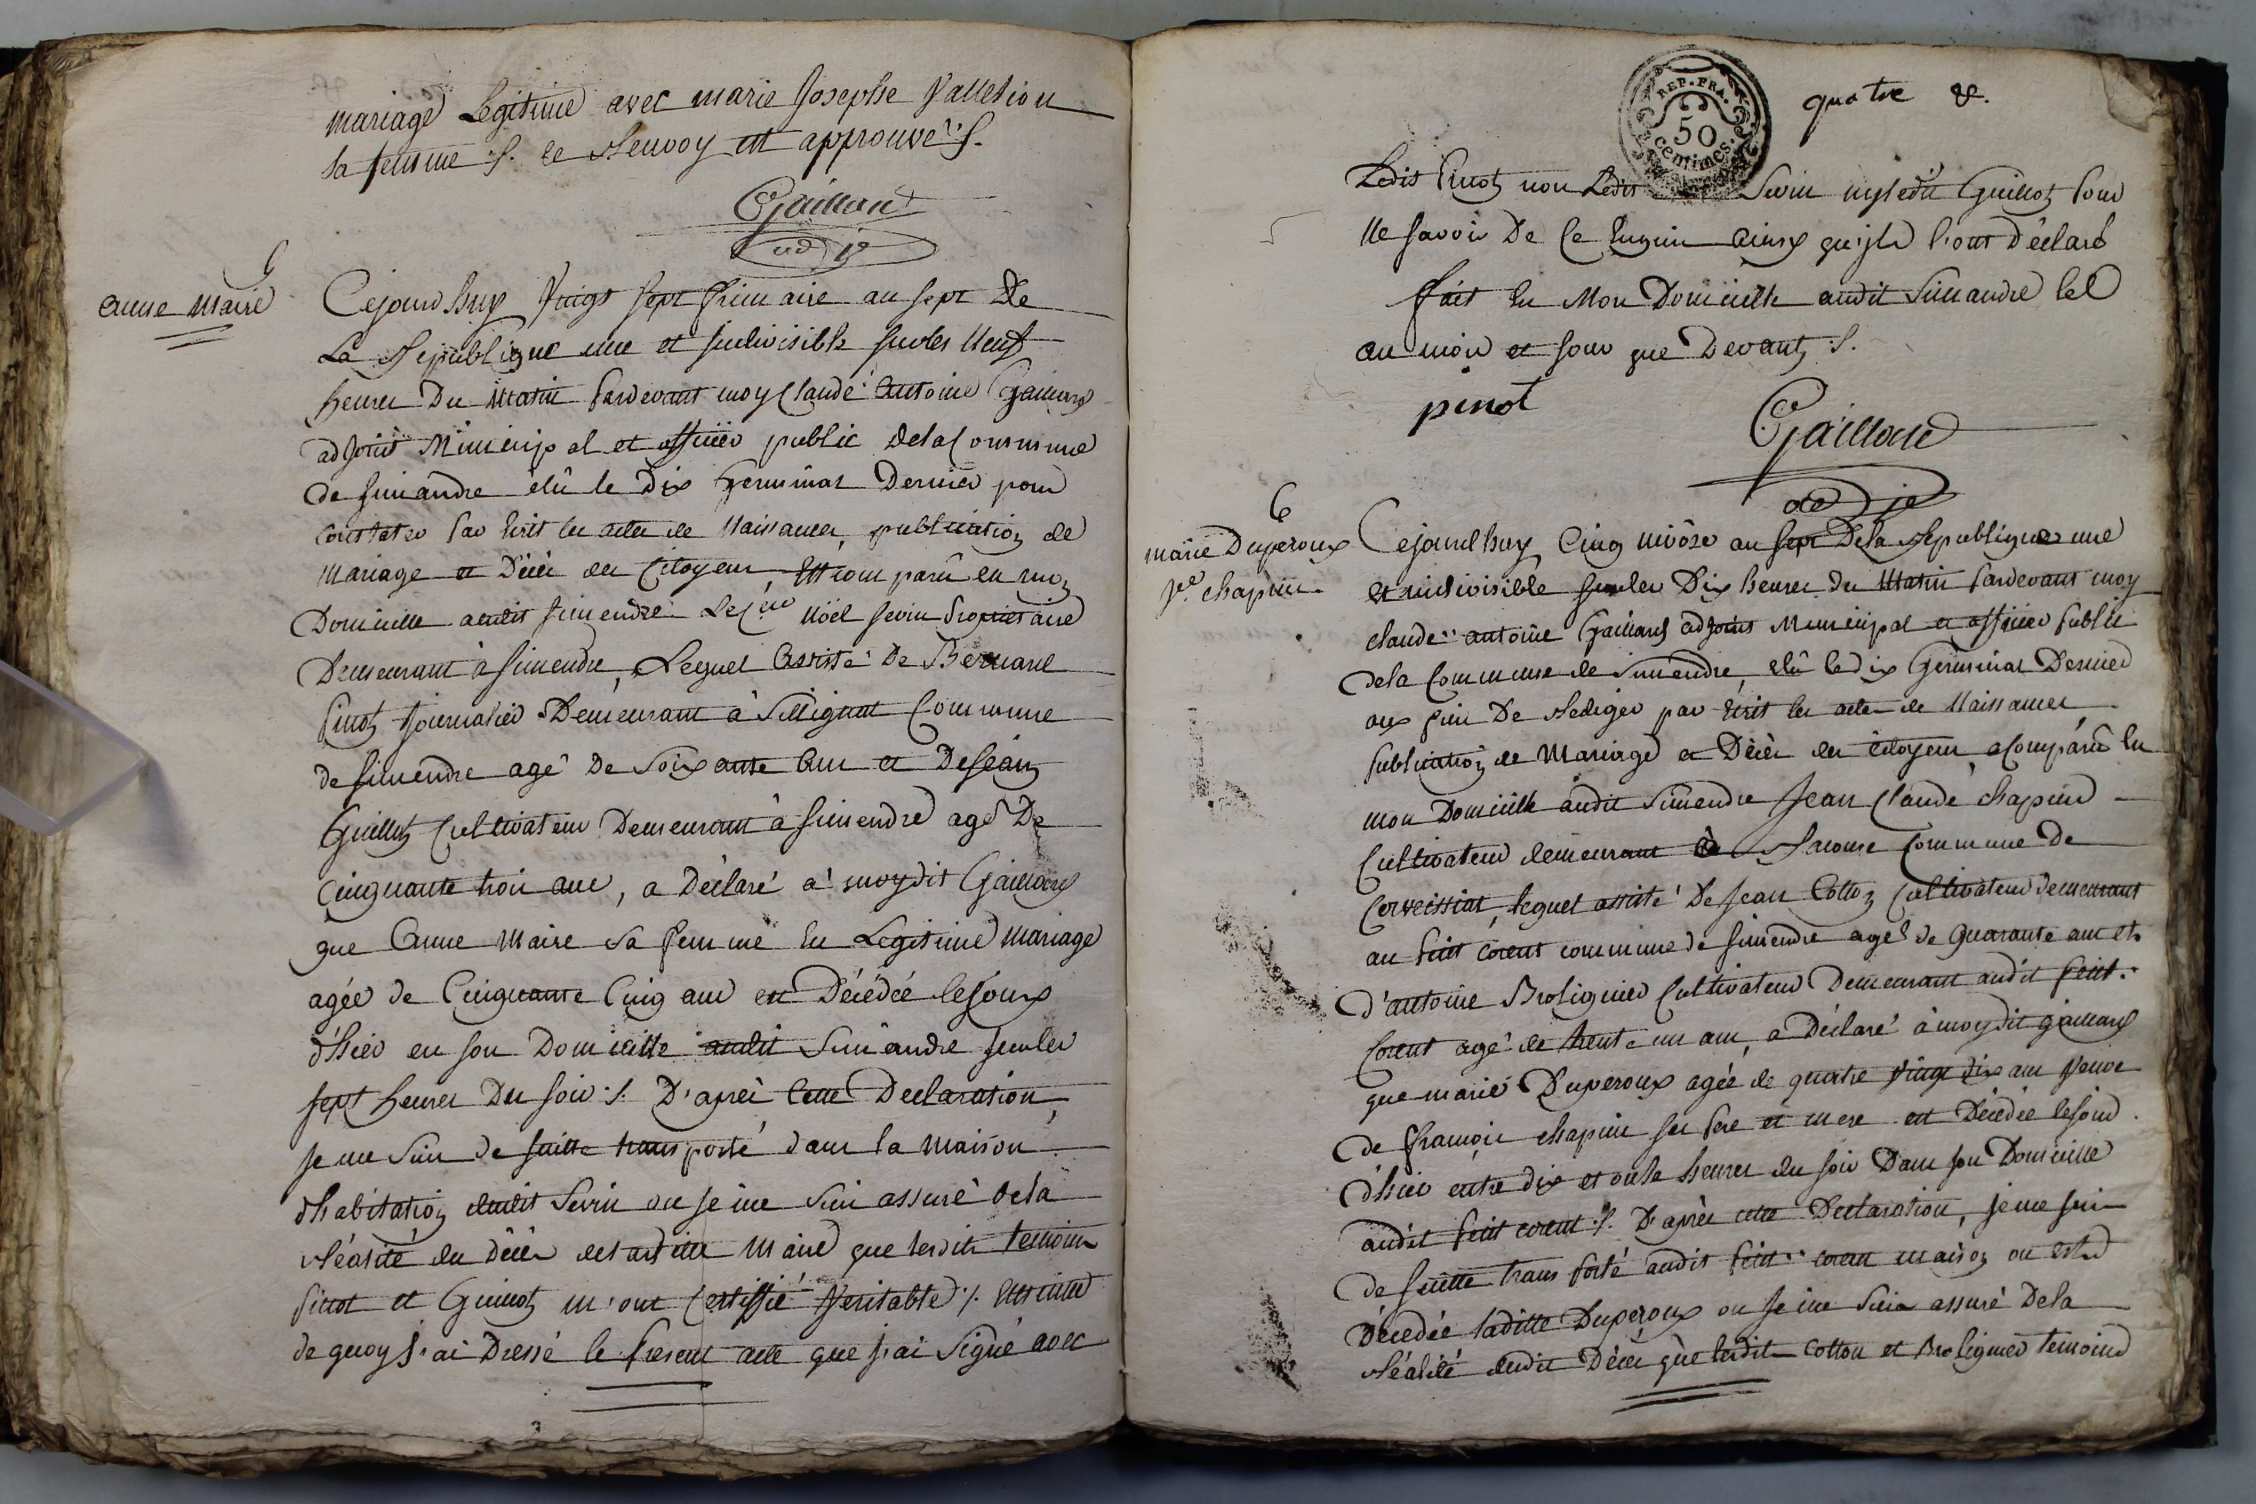 mariage Legitime avec marie Josephe Valletion
sa femme ./. le Renvoy est approuvé ./.
Gaillard
adj
5
anne Maire
Cejourdhuy Vingt sept frimaire an sept De
La Republique une et indivisible sur les Neuf
heures Du Matin pardevant moy Claude antoine Gaillard
adjoint Municipal et officier public dela Commune
de Simandre élû le Dix Germinal Dernier pour
constater par Ecrit les actes de Naissances, publication de
Mariage et Décès des Citoyens Est comparû en mon
Domicille audit Simendre Le Cen Nöel Sevin proprietaire
Demeurant à Simendre, Lequel assisté De Bernard
Pinot journalier Demeurant à Sillignat Commune
de Simendre agé De Soixante ans et De Jean
Guillot Cultivateur Demeurant à Simendre agé De
Cinquante trois ans, a Déclaré à moydit Gaillard
que Anne Maire sa femme en Legitime mariage
agée de Cinquante Cinq ans est Décédée le jourd
d'hier en son Domicille audit Simandre sur les
sept heures Du soir ./. D'après cette Declaration,
je me suis de suitte transporté dans la maison
dhabitation dudit Sevin ou je me suis assuré dela
Réalité du Décès de laditte Maire que lesdits temoins
Pinot et Guillot m'ont Certiffié Veritable ./. En suitte
de quoy j'ai Dressé le present acte que j'ai Signé avec
REP. FRA.
50
centimes.
quatre &.
Ledit Pinot non Ledit Sevin ny ledit Guillot pour
Ne savoir De ce Enquis ainsi qu'ils l'ont Déclaré
fait en Mon Domicille audit Simandre les
an mois et jour que Devant ./.
pinot
Gaillard
adj
6
marie Duperoux
ve. chapuis
Cejourdhuy Cinq nivôse an sept Dela Republique une
et indivisible sur les Dix heures du Matin pardevant moy
claude antoine Gaillard adjoint Municipal et officier public
dela Commune de Simendre, élû le dix Germinal Dernier
aux fins De Rediger par Ecrit les actes de Naissances,
publication de Mariage et Décès des citoyens a Comparû en
mon Domicille audit Simendre Jean Claude chapuis
Cultivateur demeurant à Racouse Commune De
Corveissiat, lequel assisté De Jean Cotton Cultivateur demeurant
au petit Corent commune de Simendre agé de quarante ans et
d'antoine Broliquier Cultivateur Demeurant audit petit
Corent agé de trente un ans, a Déclaré à moydit gaillard
que marie Duperoux agée de quatre vingt dix ans Veuve
de francois chapuis ses pere et mere est Décédée le jourd
d'hier entre dix et onze heures du soir Dans son Domicille
audit petit corent ./. D'après cette Declaration, je me suis
de suitte transporté audit petit corent maison ou est
décédée laditte Duperoux ou je me suis assuré Dela
Réalité dudit Décès que lesdits Cotton et Broliquier temoins